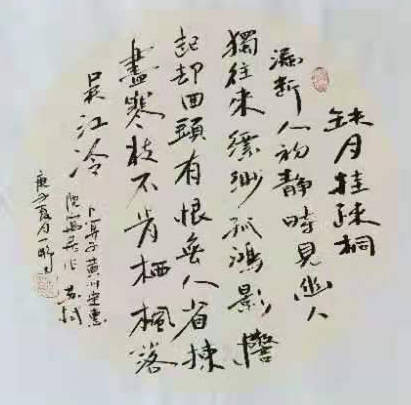 缺月挂疎桐
漏断人初静時見幽人
獨往來縹緲孤鴻影驚
起却回頭有恨無人省揀
盡寒枝不肯栖楓落
吴江冷
卜算子黄州定惠
院寓居作 苏轼
庚子夏月一